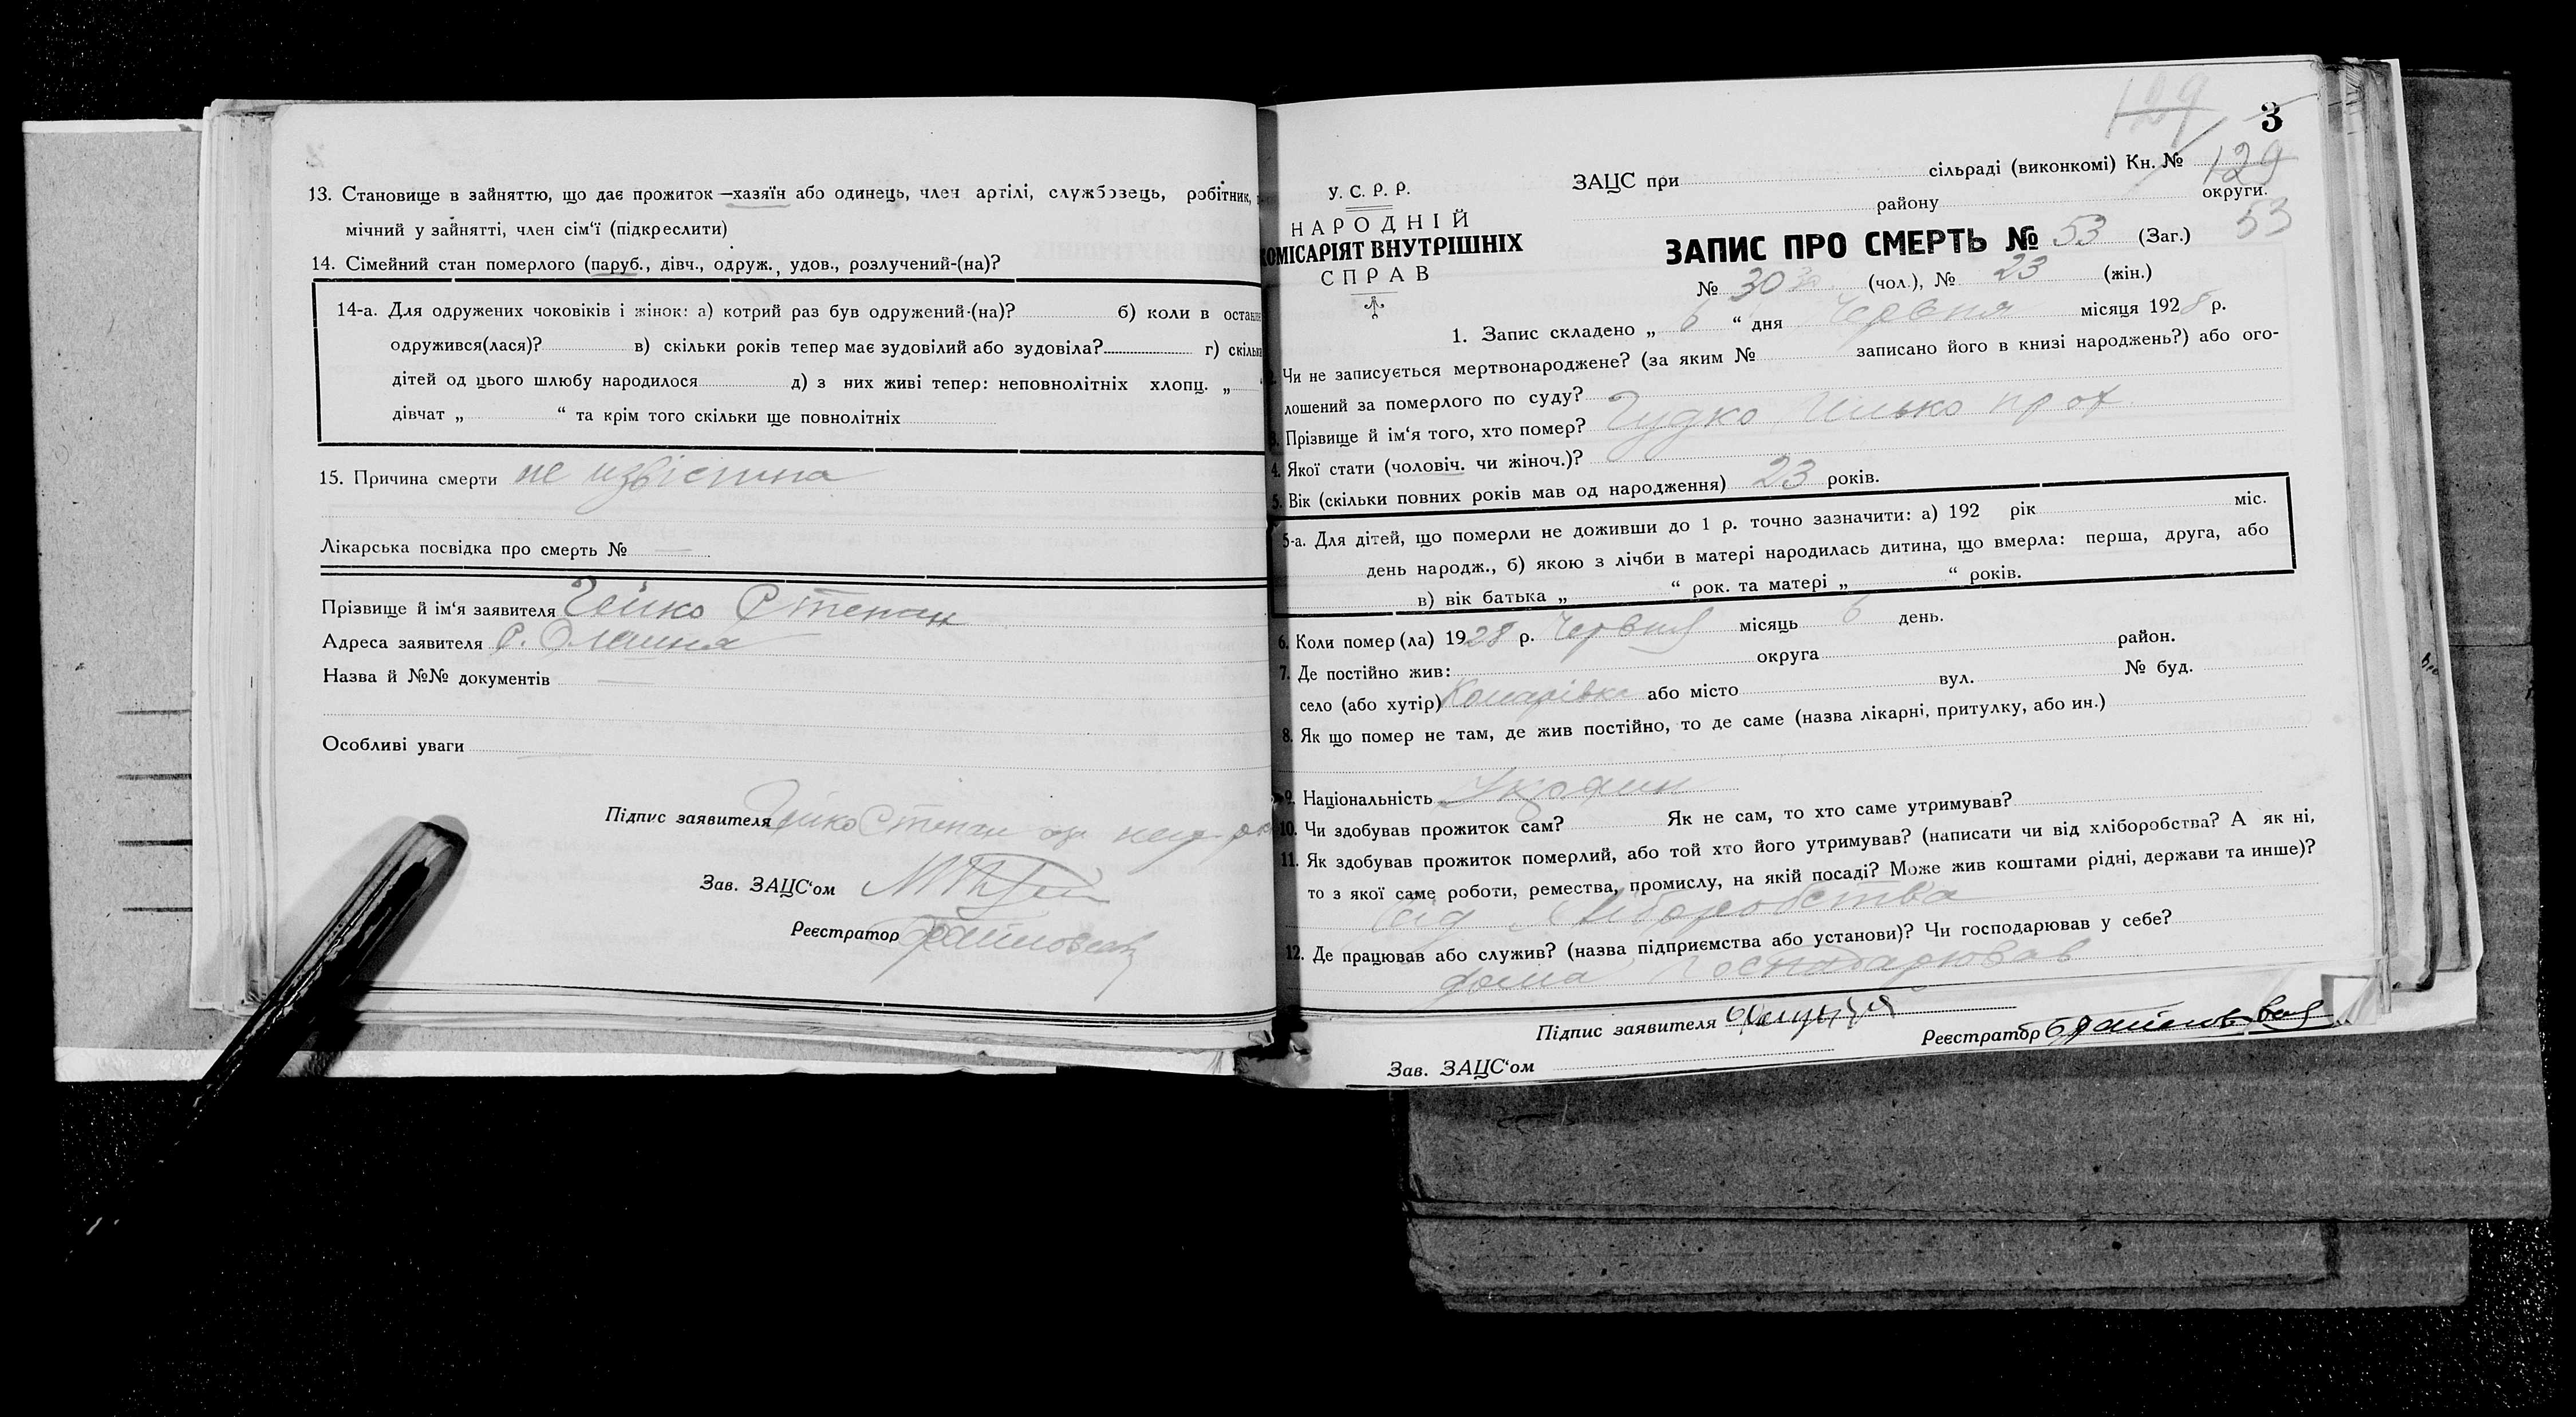 13. Становище в зайняттю, що дає прожиток —хазяїн або одинець, член артілі, службовець, робітник,
мічний у зайнятті, член сім‘ї (підкреслити)
14. Сімейний стан померлого (паруб., дівч., одруж., удов., розлучений-(на)?
14-а. Для одружених чоковіків і жінок: а) котрий раз був одружений-(на)? б) коли в останн
одружився(лася)? в) скільки років тепер має зудовілий або зудовіла? г) скільк
дітей од цього шлюбу народилося д) з них живі тепер: неповнолітніх хлопц. „
дівчат „ “ та крім того скільки ще повнолітніх
15. Причина смерти не извістина
Лікарська посвідка про смерть № —
Прізвище й ім‘я заявителя Гейко Степан
Адреса заявителя
Назва й №№ документів —
Особливі уваги
Підпис заявителя Гейко Степан
Зав. ЗАЦС‘ом
Реєстратор
129
3
У. С. Р. Р.
НАРОДНІЙ
КОМІСАРІЯТ ВНУТРІШНІХ
СПРАВ
ЗАЦС при сільраді (виконкомі) Кн. № 129
району округи.
ЗАПИС ПРО СМЕРТЬ № 53 (Заг.) 53
№ 30 30 (чол.), № 23 (жін.)
1. Запис складено „ 6 “ дня Червня місяця 1928 р.
Чи не записується мертвонароджене? (за яким № записано його в книзі народжень?) або ого-
лошений за померлого по суду?
3. Прізвище й ім‘я того, хто помер? Гудко Илько
4. Якої стати (чоловіч. чи жіноч.)?
5. Вік (скільки повних років мав од народження) 23 років.
5-а. Для дітей, що померли не доживши до 1 р. точно зазначити: а) 192 рік міс.
день народж., б) якою з лічби в матері народилась дитина, що вмерла: перша, друга, або
в) вік батька „ “ рок. та матері „ “ років.
6. Коли помер (ла) 1928 р. Червня місяць 6 день.
7. Де постійно жив: округа район.
село (або хутір) Комарівка або місто вул. № буд.
8. Як що помер не там, де жив постійно, то де саме (назва лікарні, притулку, або ин.)
9. Національність Україн
10. Чи здобував прожиток сам? Як не сам, то хто саме утримував?
11. Як здобував прожиток померлий, або той хто його утримував? (написати чи від хліборобства? А як ні,
то з якої саме роботи, ремества, промислу, на якій посаді? Може жив коштами рідні, держави та инше)?
від хліборобства
12. Де працював або служив? (назва підприємства або установи)? Чи господарював у себе?
дома господарював
Підпис заявителя
Реєстратор
Зав. ЗАЦС‘ом